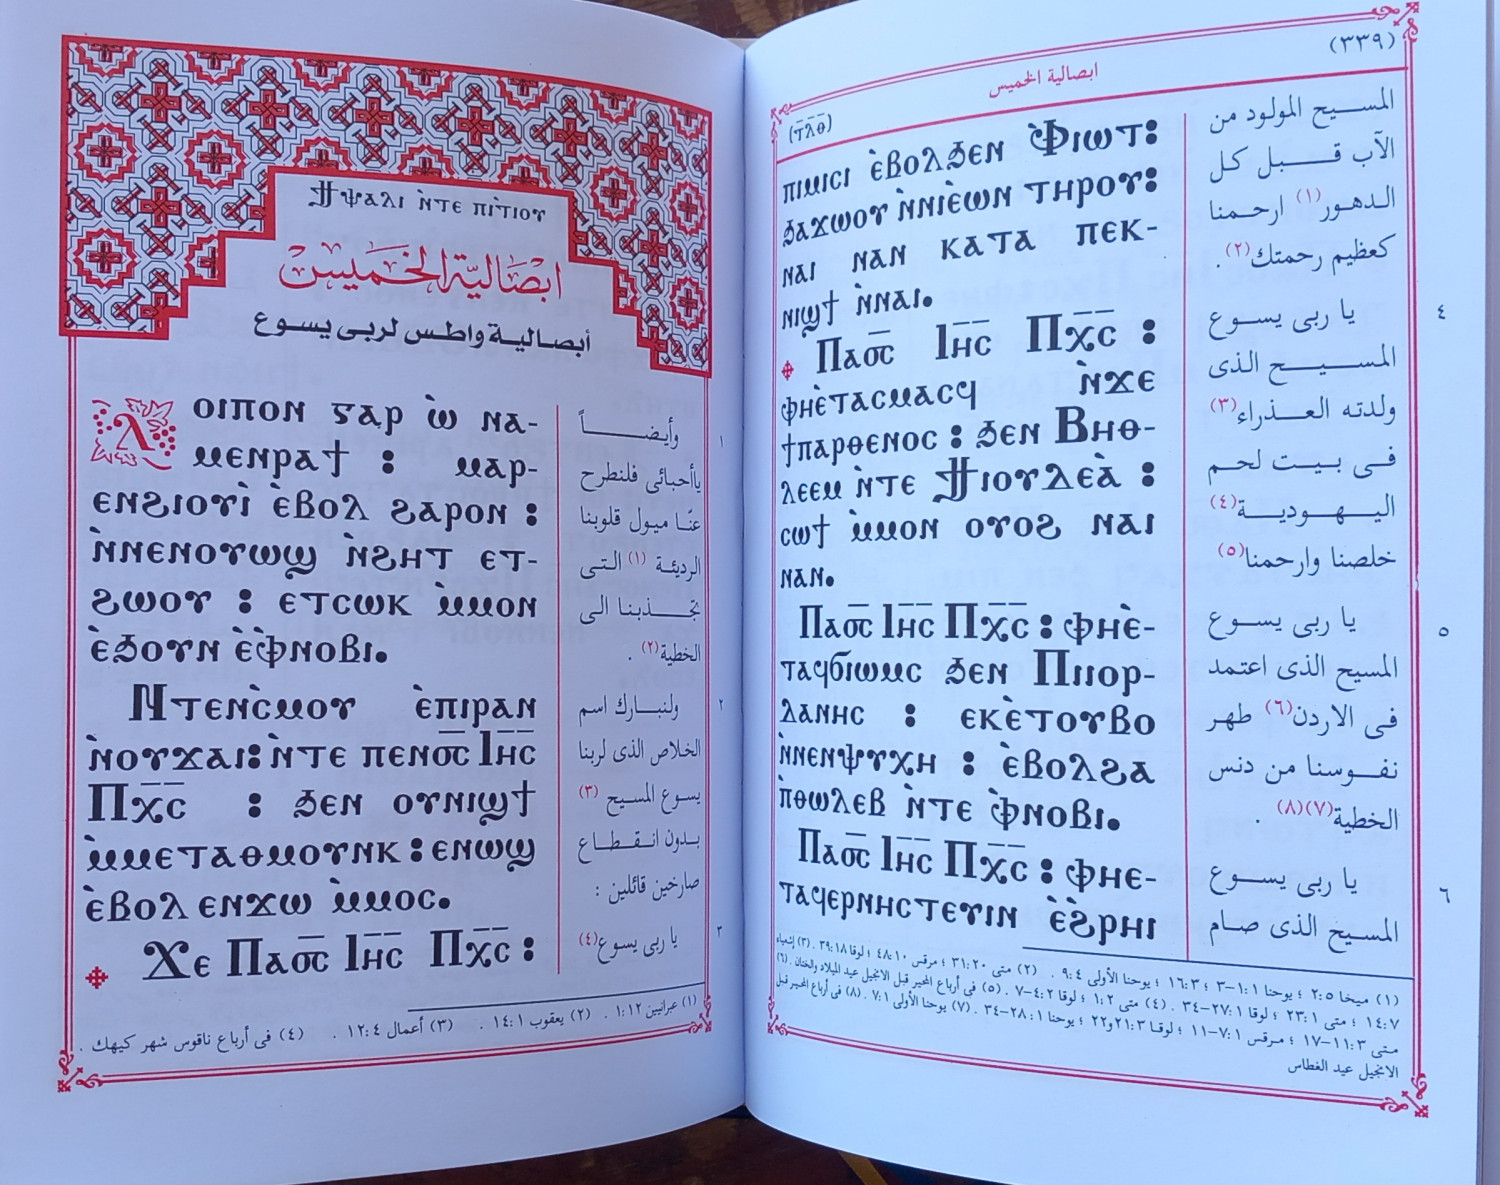 Ϯⲯⲁⲗⲓ ⲛ̀ⲧⲉ ⲡⲓ̀ⲧⲓⲟⲩ
ابصالية الخميس
أبصالية واطس لربى يسوع
Ⲗⲟⲓⲡⲟⲛ ⲅⲁⲣ ⲱ̀ ⲛⲁ-
ⲙⲉⲛⲣⲁϯ : ⲙⲁⲣ-
ⲉⲛϩⲓⲟⲩⲓ̀ ⲉ̀ⲃⲟⲗ ϩⲁⲣⲟⲛ :
ⲛ̀ⲛⲉⲛⲟⲩⲱϣ ⲛ̀ϩⲏⲧ ⲉⲧ-
ϩⲱⲟⲩ : ⲉⲧⲥⲱⲕ ⲙ̀ⲙⲟⲛ
ⲉ̀ϧⲟⲩⲛ ⲉ̀ⲫ̀ⲛⲟⲃⲓ.
Ⲛⲧⲉⲛⲥ̀ⲙⲟⲩ ⲉ̀ⲡⲓⲣⲁⲛ
ⲛ̀ⲟⲩϫⲁⲓ: ⲛ̀ⲧⲉ ⲡⲉⲛⲟ̅ⲥ̅ Ⲓⲏ̅ⲥ̅
Ⲡⲭ̅ⲥ̅ : ϧⲉⲛ ⲟⲩⲛⲓϣϯ
ⲙ̀ⲙⲉⲧⲁⲑⲙⲟⲩⲛⲕ : ⲉⲛⲱϣ
ⲉ̀ⲃⲟⲗ ⲉⲛϫⲱ ⲙ̀ⲙⲟⲥ.
Ϫⲉ Ⲡⲁⲟ̅ⲥ̅ Ⲓⲏ̅ⲥ̅ Ⲡⲭ̅ⲥ̅ :
وأيضــاً ١
ياأحبائى فلنطرح
عنّـا ميول قلوبنا
الرديئة (١) التـى
تجـذبنـا الى
الخطية (٢) .
ولنبـارك اسم ٢
الخلاص الذى لربنا
يسوع المسيح (٣)
بـدون انـقـطـاع
صارخين قائلين :
يا ربى يسوع (٤) ٣
(١) عبرانيين ١:١٢ . (٢) يعقوب ١٤:١ . (٣) أعمال ١٢:٤ . (٤) فى أرباع ناقوس شهر كيهك .
(ⲧ̅ⲗ̅ⲑ̅) ابصالية الخميس (٣٣٩)
ⲡⲓⲙⲓⲥⲓ ⲉ̀ⲃⲟⲗϧⲉⲛ Ⲫ̀ⲓⲱⲧ:
ϧⲁϫⲱⲟⲩ ⲛ̀ⲛⲓⲉ̀ⲱⲛ ⲧⲏⲣⲟⲩ:
ⲛⲁⲓ ⲛⲁⲛ ⲕⲁⲧⲁ ⲡⲉⲕ-
ⲛⲓϣϯ ⲛ̀ⲛⲁⲓ.
Ⲡⲁⲟ̅ⲥ̅ Ⲓⲏ̅ⲥ̅ Ⲡⲭ̅ⲥ̅ :
ⲫⲏⲉ̀ⲧⲁⲥⲙⲁⲥϥ ⲛ̀ϫⲉ
ϯⲡⲁⲣⲑⲉⲛⲟⲥ : ϧⲉⲛ Ⲃⲏⲑ-
ⲗⲉⲉⲙ ⲛ̀ⲧⲉ Ϯⲓⲟⲩⲇⲉⲁ̀ :
ⲥⲱϯ ⲙ̀ⲙⲟⲛ ⲟⲩⲟϩ ⲛⲁⲓ
ⲛⲁⲛ.
Ⲡⲁⲟ̅ⲥ̅ Ⲓⲏ̅ⲥ̅ Ⲡⲭ̅ⲥ̅ : ⲫⲏⲉ̀-
ⲧⲁϥϭⲓⲱⲙⲥ ϧⲉⲛ Ⲡⲓⲓⲟⲣ-
ⲇⲁⲛⲏⲥ : ⲉⲕⲉ̀ⲧⲟⲩⲃⲟ
ⲛ̀ⲛⲉⲛⲯⲩⲭⲏ : ⲉ̀ⲃⲟⲗϩⲁ
ⲡ̀ⲑⲱⲗⲉⲃ ⲛ̀ⲧⲉ ⲫ̀ⲛⲟⲃⲓ.
Ⲡⲁⲟ̅ⲥ̅ Ⲓⲏ̅ⲥ̅ Ⲡⲭ̅ⲥ̅ : ⲫⲏⲉ-
ⲧⲁϥⲉⲣⲛⲏⲥⲧⲉⲩⲓⲛ ⲉ̀ϩ̀ⲣⲏⲓ
المسـيح المولود من
الآب قـبـل كـل
الـدهـور (١) ارحـمنا
كعظيم رحمتك (٢) .
يا ربى يسوع ٤
المسـيـح الذى
ولدته العـذراء (٣)
فـى بـيـت لحـم
اليـهـوديـة (٤)
خلصنا وارحمنا (٥)
يا ربى يسوع ٥
المسيح الذى اعتمد
فـى الاردن (٦) طهر
نفـوسنا من دنس
الخطية (٧) (٨) .
يا ربى يسـوع ٦
المسيح الذى صـام
(١) ميخا ٢:٥ ؛ يوحنا ١:١-٣ ؛ ١٦:٣ ؛ يوحنا الأولى ٩:٤ . (٢) متى ٣١:٢٠ ؛ مرقس ٤٨:١٠ ؛ لوقا ٣٩:١٨ . (٣) إشعياء
١٤:٧ ؛ متى ٢٣:١ ؛ لوقا ٢٧:١-٣٤ . (٤) متى ١:٢ ؛ لوقا ٤:٢-٧ . (٥) فى أرباع المحير قبل الانجيل عيد الميلاد والختان . (٦)
متى ١١:٣-١٧ ؛ مـرقس ٧:١-١١ ؛ لوقـا ٢١:٣و٢٢ ؛ يوحنا ٢٨:١-٣٤ . (٧) يوحنا الأولى ٧:١ . (٨) فى أرباع المحير قبل
الانجيل عيد الغطاس